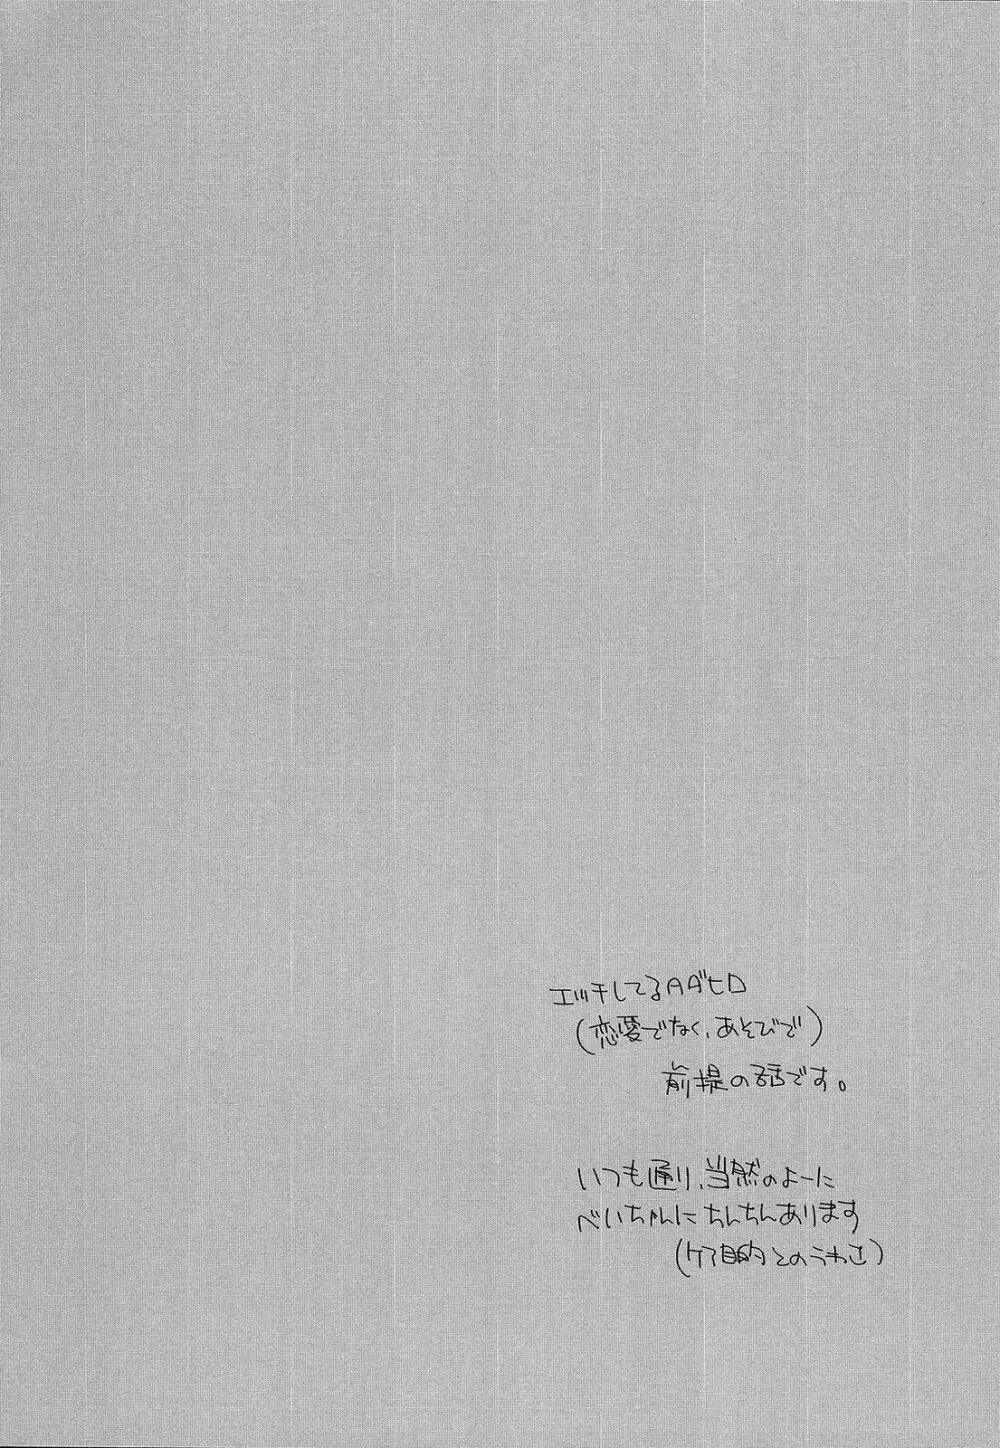 エッチしてるAAヒロ
(恋愛でなく、あそびで)
前提の話です。
いつも通り、当然のよーに
べいちゃんにちんちんあります
(ケア目的とのうわさ)